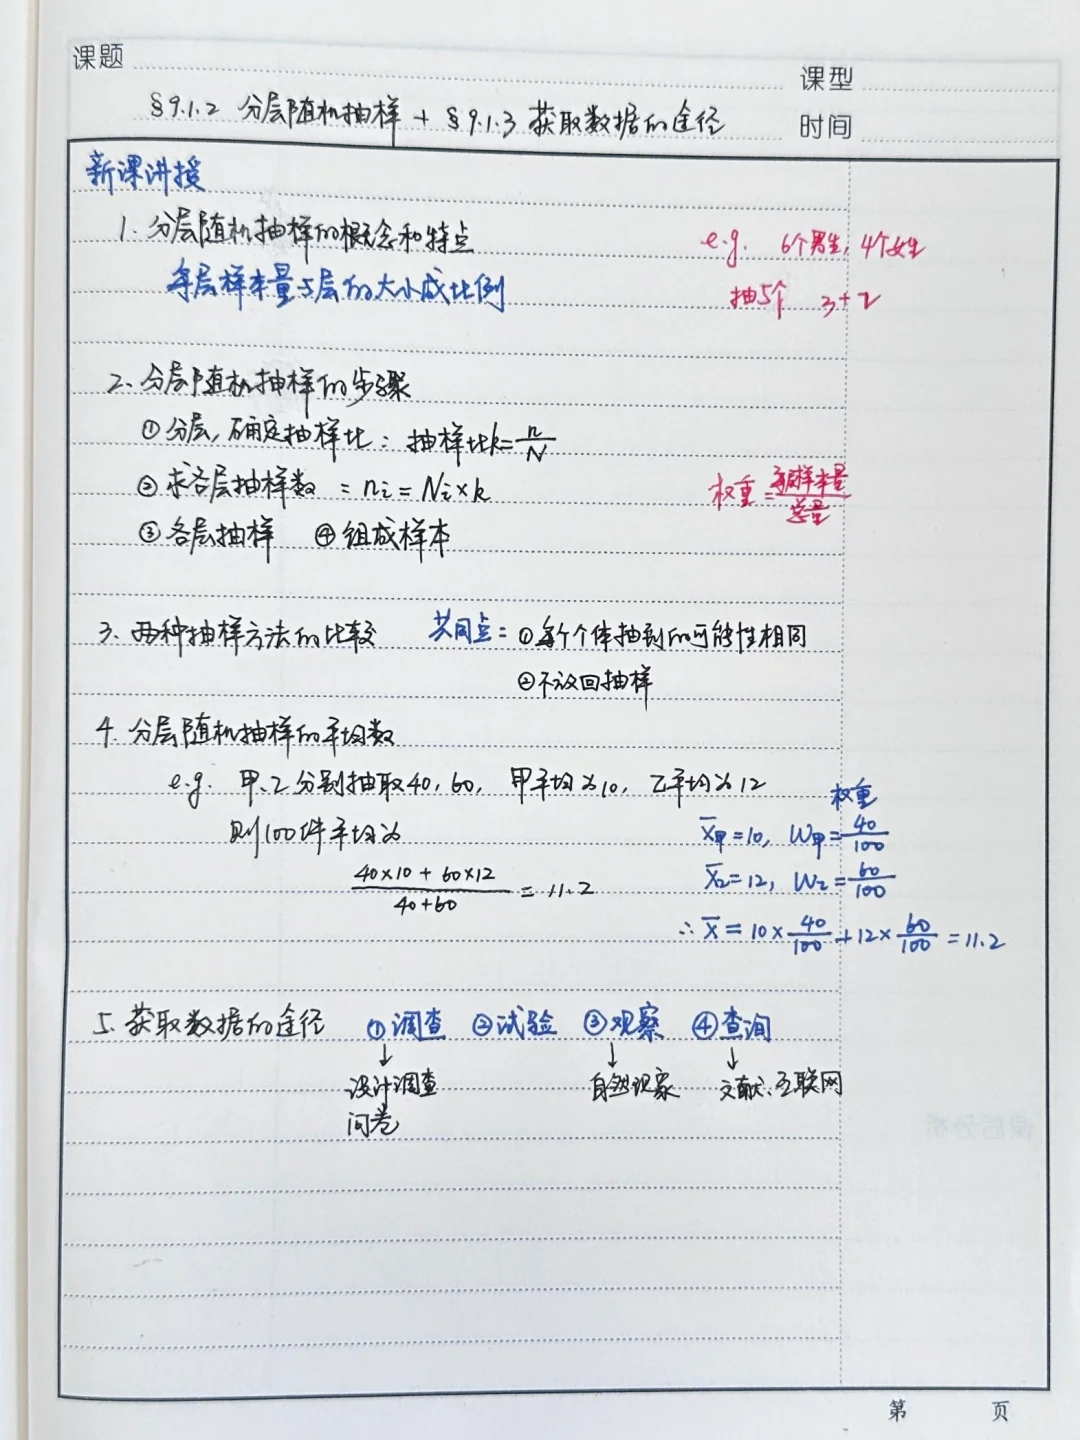 课题
课型
§9.1.2 分层随机抽样 + §9.1.3 获取数据的途径
时间
新课讲授
1. 分层随机抽样的概念和特点
e.g. 6个男生, 4个女生
每层样本量与层的大小成比例
抽5个 3+2
2. 分层随机抽样的步骤
①分层, 确定抽样比: 抽样比k=n/N
②求各层抽样数 : ni=Ni×k
权重=每层样本量/总量
③各层抽样 ④组成样本
3. 两种抽样方法的比较 共同点: ①每个个体抽到的可能性相同
②不放回抽样
4. 分层随机抽样的平均数
e.g. 甲、乙分别抽取40, 60, 甲平均为10, 乙平均为12
权重
则100件平均为
x̄甲=10, W甲=40/100
(40×10+60×12)/(40+60) = 11.2
x̄乙=12, W乙=60/100
∴ x̄ = 10×40/100+12×60/100=11.2
5. 获取数据的途径 ①调查 ②试验 ③观察 ④查询
↓ ↓ ↓
设计调查 自然现象 文献、互联网
问卷
课后分析
第 页